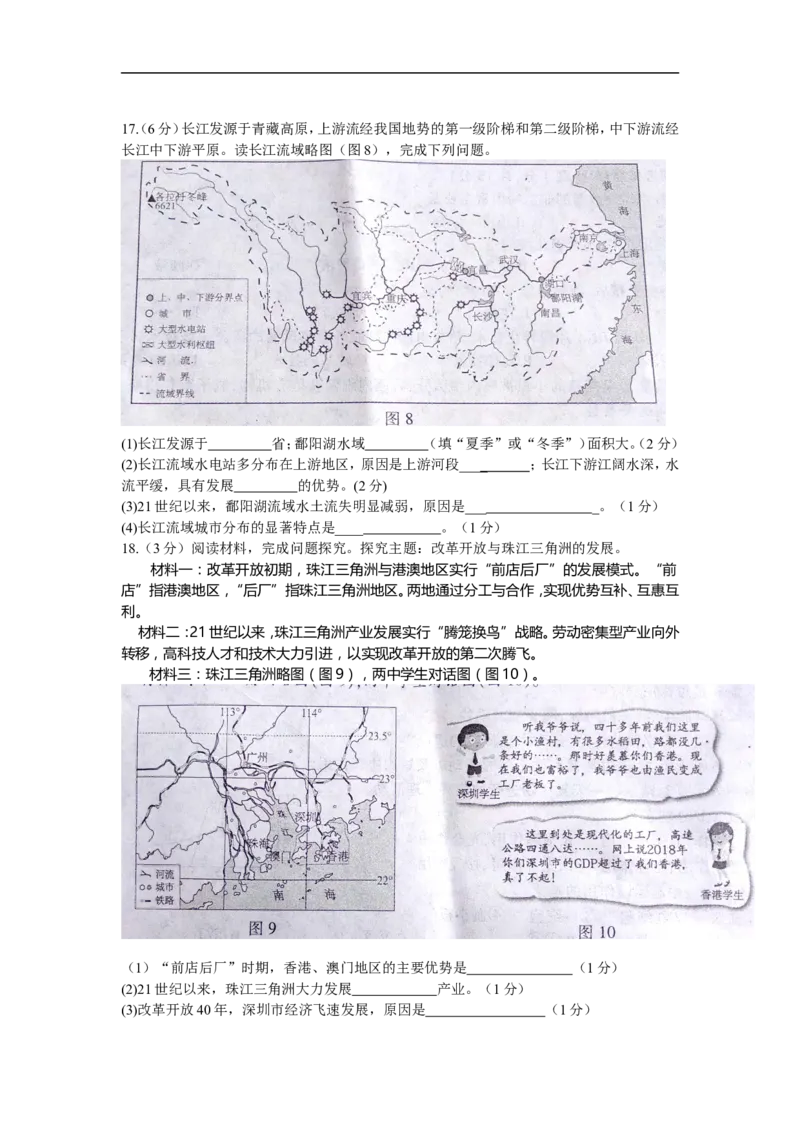 17.（6分）长江发源于青藏高原，上游流经我国地势的第一级阶梯和第二级阶梯，中下游流经
长江中下游平原。读长江流域略图（图8），完成下列问题。
黄
海
各拉丹冬峰
6621
南京
上海
武汉
宜昌
湖口
鄱阳湖
宜宾
重庆
长沙
南昌
东
海
上、中、下游分界点
城 市
大型水电站
大型水利枢纽
河 流
省 界
流域界线
图8
(1)长江发源于_________省；鄱阳湖水域_________（填“夏季”或“冬季”）面积大。（2分）
(2)长江流域水电站多分布在上游地区，原因是上游河段__________；长江下游江阔水深，水
流平缓，具有发展_________的优势。（2分）
(3)21世纪以来，鄱阳湖流域水土流失明显减弱，原因是___________________。（1分）
(4)长江流域城市分布的显著特点是_______________。（1分）
18.（3分）阅读材料，完成问题探究。探究主题：改革开放与珠江三角洲的发展。
材料一：改革开放初期，珠江三角洲与港澳地区实行“前店后厂”的发展模式。“前
店”指港澳地区，“后厂”指珠江三角洲地区。两地通过分工与合作，实现优势互补、互惠互
利。
材料二：21世纪以来，珠江三角洲产业发展实行“腾笼换鸟”战略。劳动密集型产业向外
转移，高科技人才和技术大力引进，以实现改革开放的第二次腾飞。
材料三：珠江三角洲略图（图9），两中学生对话图（图10）。
113° 114°
23.5°
广州
23°
珠
江
深圳
珠海
澳门
香港
22°
南 海
河流
城市
铁路
图9
听我爷爷说，四十多年前我们这里
是个小渔村，有很多水稻田，路都没几
条好的……。那时好羡慕你们香港。现
在我们也富裕了，我爷爷也由渔民变成
工厂老板了。
深圳学生
这里到处是现代化的工厂，高速
公路四通八达……。网上说2018年
你们深圳市的GDP超过了我们香港，
真了不起！
香港学生
图10
（1）“前店后厂”时期，香港、澳门地区的主要优势是_______________（1分）
(2)21世纪以来，珠江三角洲大力发展____________产业。（1分）
(3)改革开放40年，深圳市经济飞速发展，原因是_________________（1分）